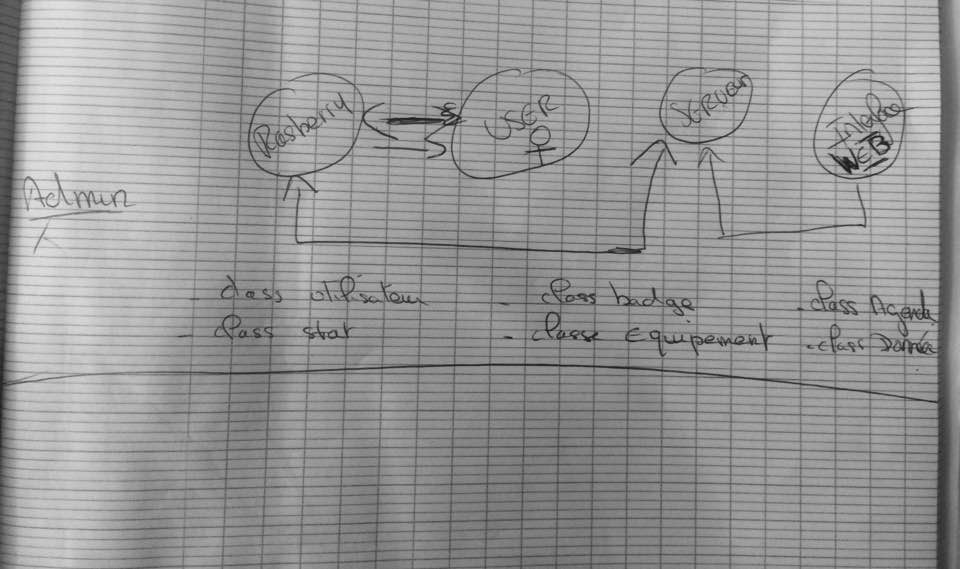 Rasberry
USER
SERVeur
Interface
WEB
Admin
- class utilisateur - class badge - class Agenda
- class stat - classe Equipement - class Donnée